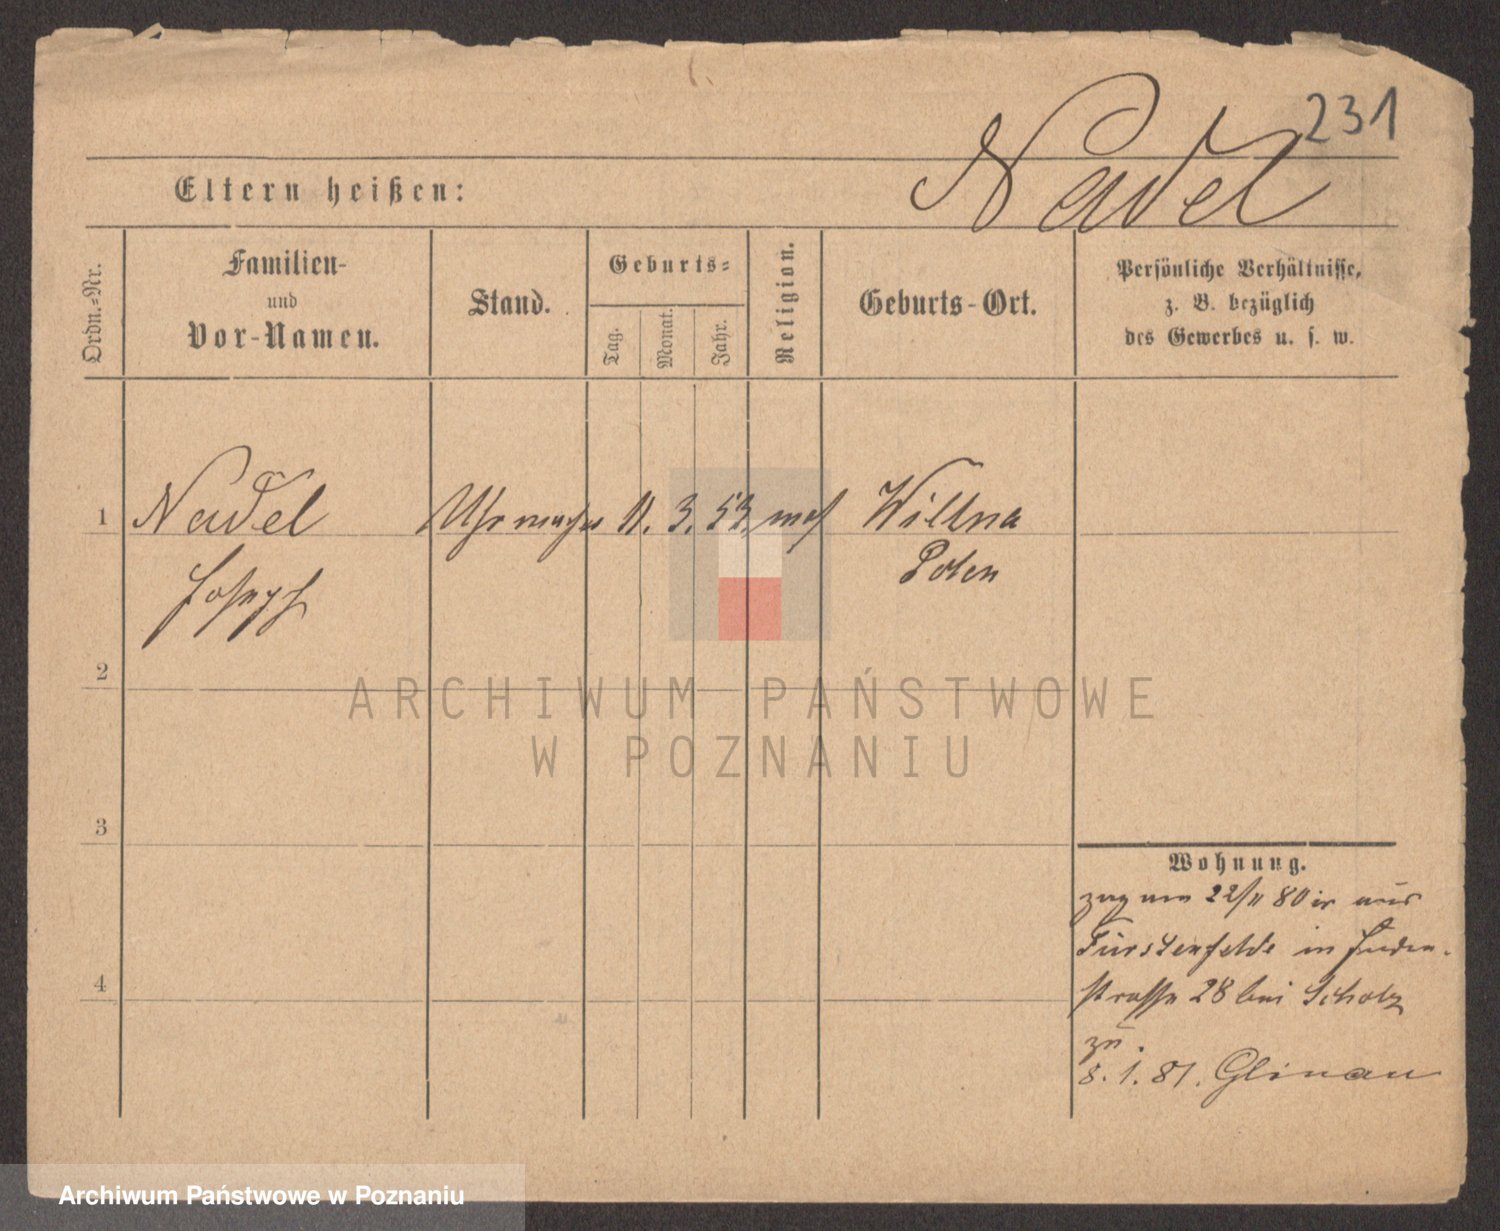 231
Nadel
Eltern heißen:
Ordn.=Nr.
Familien-
und
Vor-Namen.
Stand.
Geburts=
Tag.
Monat.
Jahr.
Religion.
Geburts-Ort.
Persönliche Verhältnisse,
z. B. bezüglich
des Gewerbes u. s. w.
1 Nadel Uhrmacher 11. 3. 53. mos Willna
Joseph Polen
2
ARCHIWUM PAŃSTWOWE
W POZNANIU
3
Wohnung.
zog am 22/11 80 aus
Fürstenfelde in Juden-
strasse 28 bei Scholz
zu.
4
8. 1. 81. Glinau
Archiwum Państwowe w Poznaniu